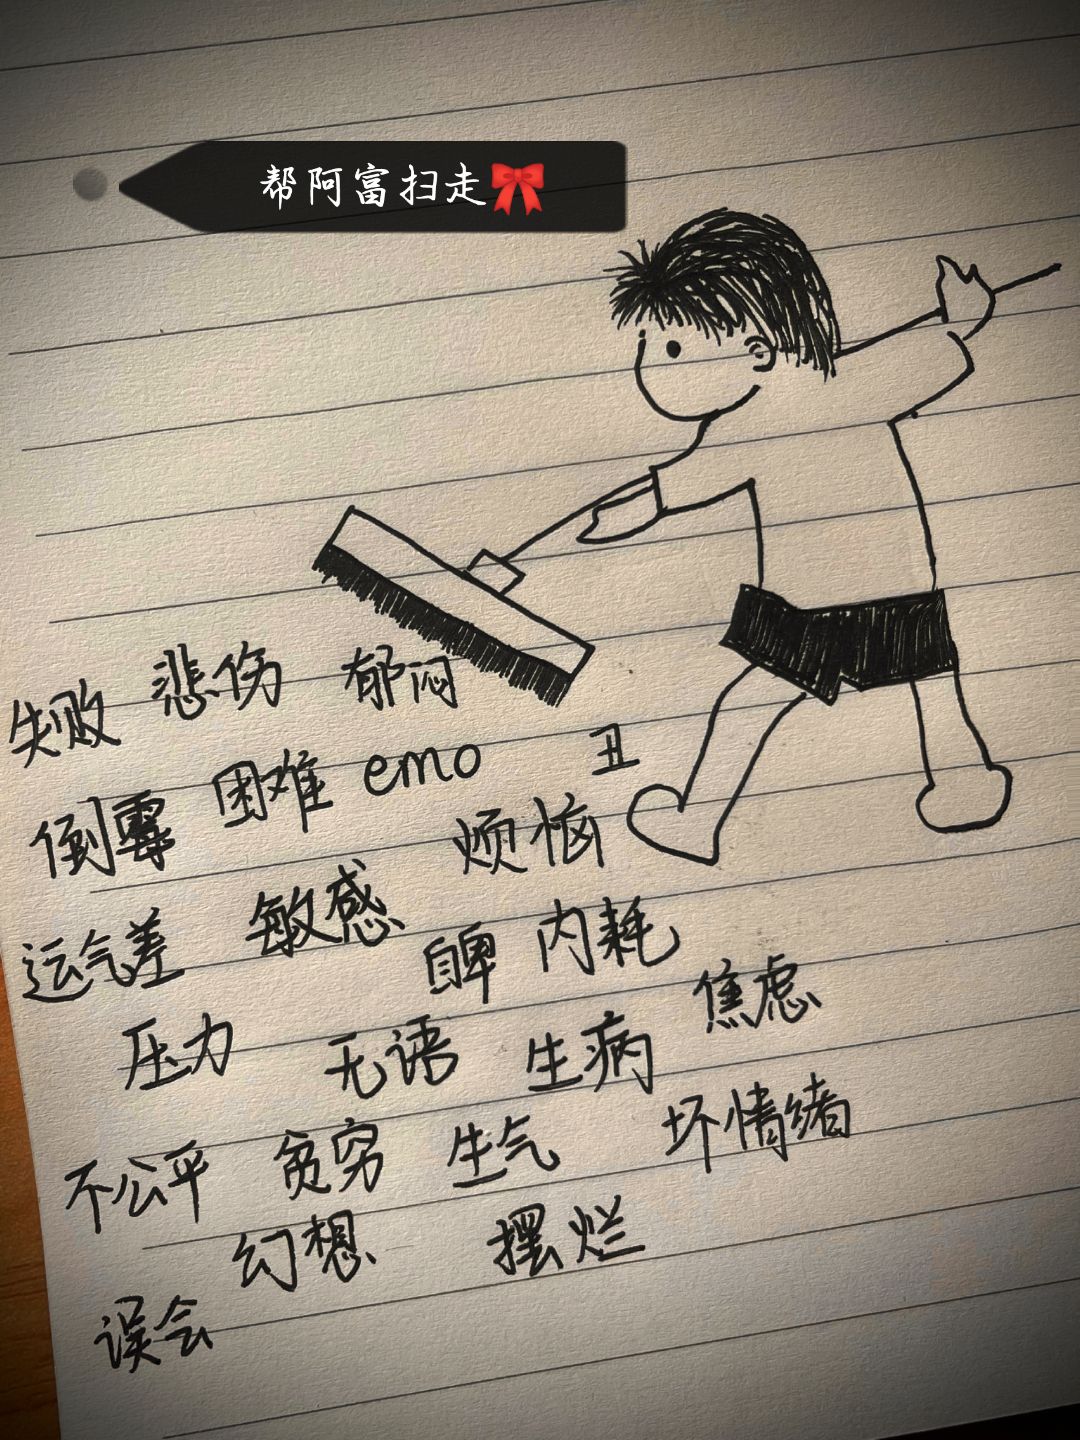 帮阿富扫走🎀
失败 悲伤 郁闷
倒霉 困难 emo 丑
运气差 敏感 烦恼
自卑 内耗
压力 无语 生病 焦虑
不公平 贫穷 生气 坏情绪
幻想 摆烂
误会